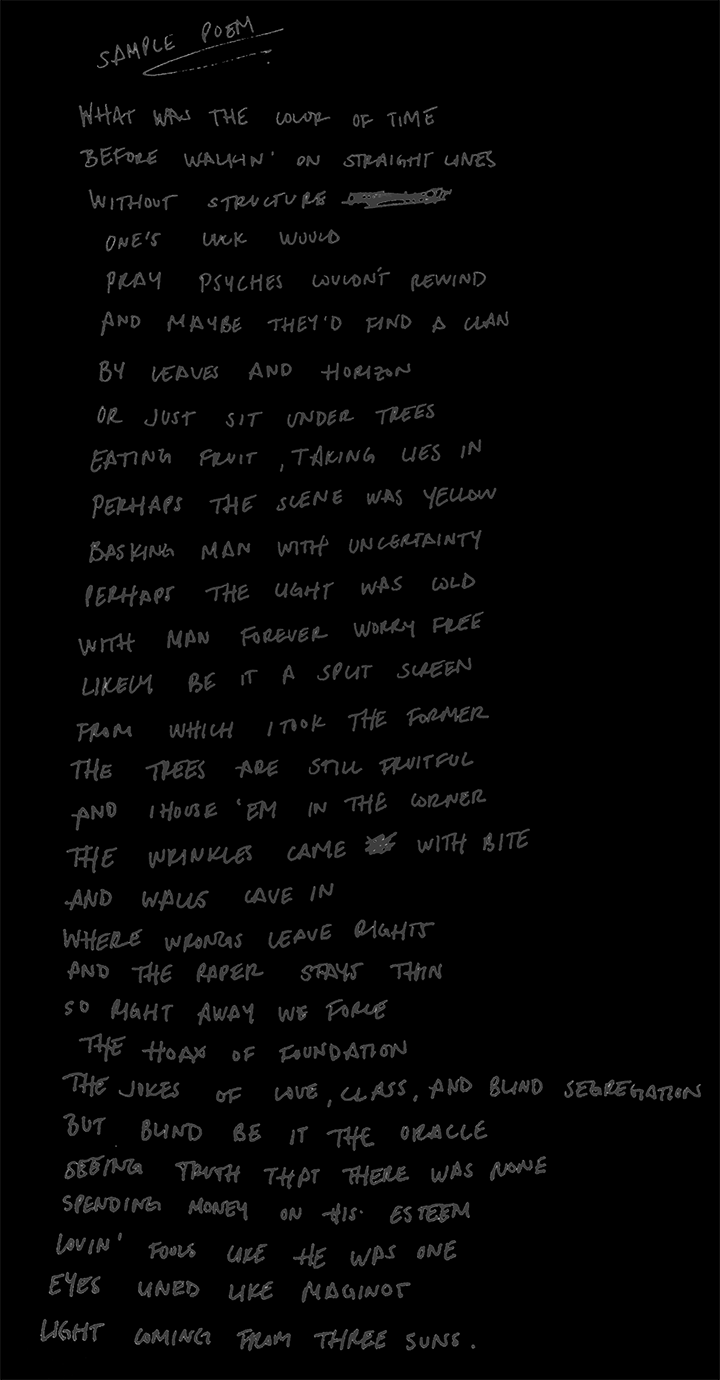 SAMPLE POEM
WHAT WAS THE COLOR OF TIME
BEFORE WALKIN' ON STRAIGHT LINES
WITHOUT STRUCTURE
ONE'S LUCK WOULD
PRAY PSYCHES COULDN'T REWIND
AND MAYBE THEY'D FIND A CLAN
BY LEAVES AND HORIZON
OR JUST SIT UNDER TREES
EATING FRUIT, TAKING LIES IN
PERHAPS THE SCENE WAS YELLOW
BASKING MAN WITH UNCERTAINTY
PERHAPS THE LIGHT WAS COLD
WITH MAN FOREVER WORRY FREE
LIKELY BE IT A SPLIT SCREEN
FROM WHICH I TOOK THE FORMER
THE TREES ARE STILL FRUITFUL
AND I HOUSE 'EM IN THE CORNER
THE WRINKLES CAME WITH BITE
AND WALLS CAVE IN
WHERE WRONGS LEAVE RIGHTS
AND THE PAPER STAYS THIN
SO RIGHT AWAY WE FORCE
THE HOAX OF FOUNDATION
THE JOKES OF LOVE, CLASS, AND BLIND SEGREGATION
BUT BLIND BE IT THE ORACLE
SEEING TRUTH THAT THERE WAS NONE
SPENDING MONEY ON HIS ESTEEM
LOVIN' FOOLS LIKE HE WAS ONE
EYES LINED LIKE MAGINOT
LIGHT COMING FROM THREE SUNS.